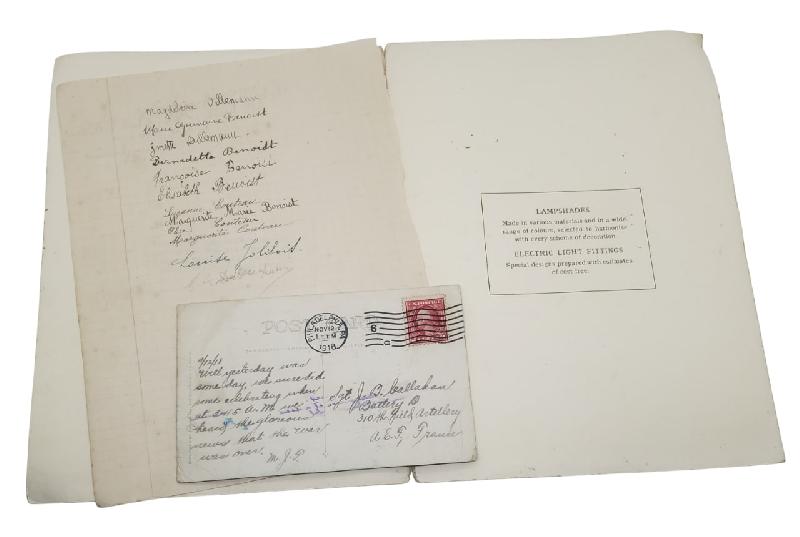 Magdeleine Villemain
Marie Germaine Benoist
Villemain
Bernadette Benoist
Françoise Benoist
Elisabeth Benoist
Suzanne Couteau
Marguerite Marie Benoist
Couteau
Marguerite Couteau
Louise
LAMPSHADES
Made in various materials and in a wide
range of colours, selected to harmonise
with every scheme of decoration.
ELECTRIC LIGHT FITTINGS
Special designs prepared with estimates
of cost free.
POST CARD
PHILADELPHIA, PA.
NOV 12
1918
6
U.S. POSTAGE
11/12/18
Well yesterday was
some day, we sure did
some celebrating when
at 2:45 A.M. we
heard the glorious
news that the war
was over.
M.J.F.
Sgt. J. B. Callahan
Battery D
310 th Field Artillery
A.E.F. France